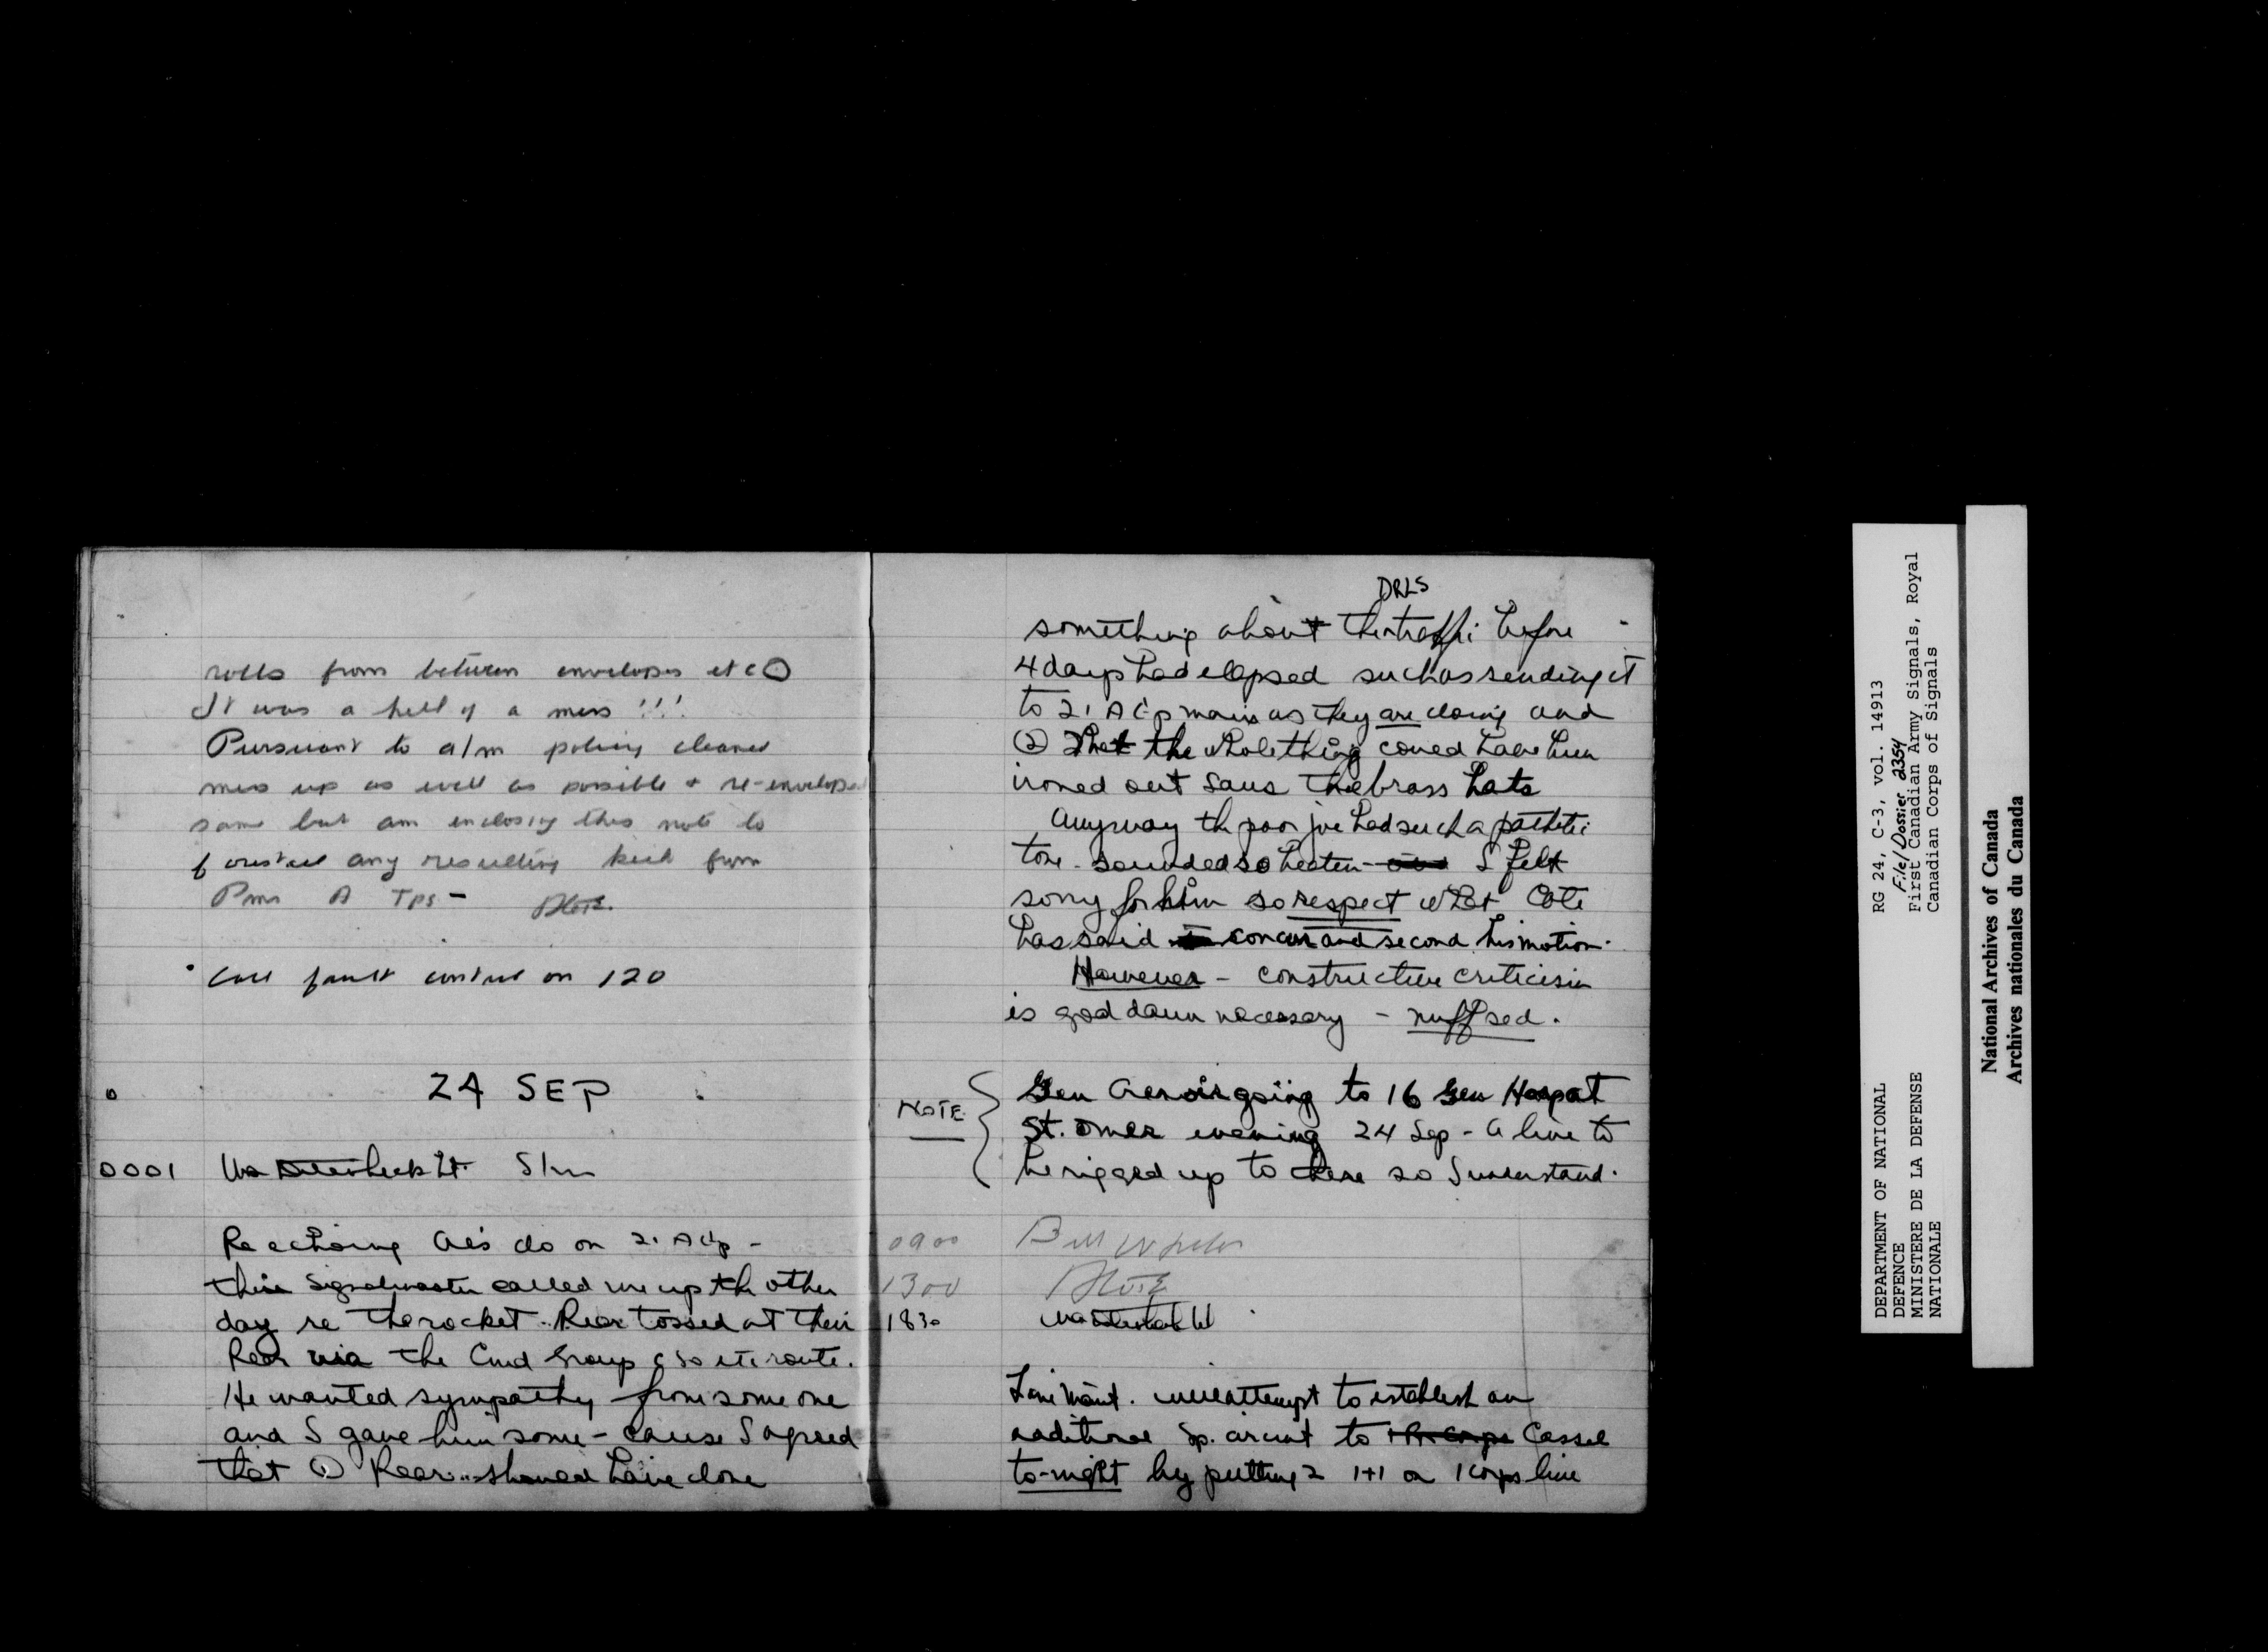 rolls from between envelopes etc
It was a hell of a mess!!!
Pursuant to a/m policy cleaned
mess up as well as possible + re-enveloped
same but am enclosing this note to
forestall any resulting kick from
A Tps -
Call fault control on 120
24 SEP
0001
Re echoing on 21 A Gp -
their Signalmaster called me up the other
day re the rocket Rear tossed at their
Rear via the Cmd Group route.
He wanted sympathy from some one
and I gave him some - cause I agreed
that ① Rear should have done
DRLS
something about the traffic before
4 days had elapsed such as sending it
to 21 A Gp main as they are doing and
② That the whole thing could have been
ironed out sans the brass hats
Anyway th poor joe had such a pathetic
tone - sounded so beaten I felt
sorry for him so respect what Cote
has said concur and second his motion.
However - constructive criticism
is god damn necessary - nuff sed.
NOTE
Gen going to 16 Gen Hospat
St. Omer evening 24 Sep - a line to
be rigged up to there so I understand.
0900 Bill
1300
1830
Line Maint. will attempt to establish an
additional Sp. circuit to Cassel
to-night by putting 2 1+1 on 1 Corps line
DEPARTMENT OF NATIONAL
DEFENCE
MINISTERE DE LA DEFENSE
NATIONALE
RG 24, C-3, vol. 14913
File/Dossier 2354
First Canadian Army Signals, Royal
Canadian Corps of Signals
National Archives of Canada
Archives nationales du Canada